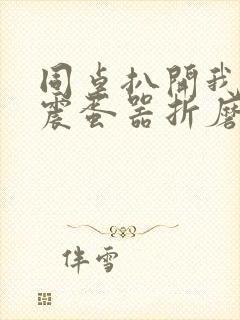 同桌扒開我
震蛋器折磨
伴雪